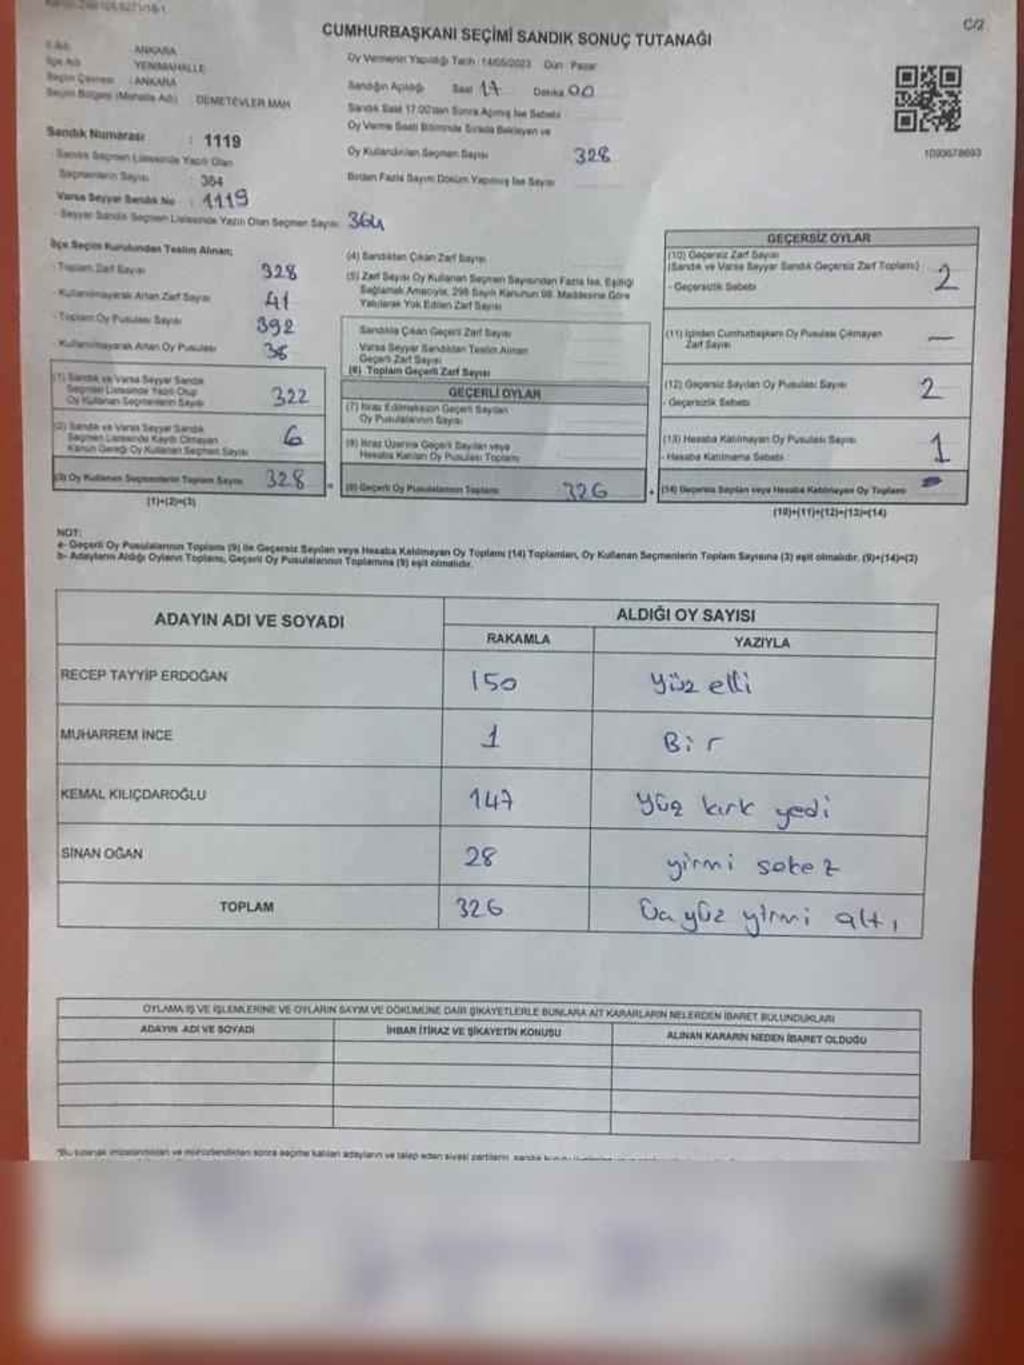 C/2
CUMHURBAŞKANI SEÇİMİ SANDIK SONUÇ TUTANAĞI
ANKARA
İlçe Adı : YENİMAHALLE
Seçim Çevresi : ANKARA
Seçim Bölgesi (Mahalle Adı) : DEMETEVLER MAH
Sandık Numarası : 1119
Sandık Seçmen Listesinde Yazılı Olan
Seçmenlerin Sayısı : 364
Varsa Seyyar Sandık No : 1119
- Seyyar Sandık Seçmen Listesinde Yazılı Olan Seçmen Sayısı 364
Oy Vermenin Yapıldığı Tarih : 14/05/2023 Gün : Pazar
Sandığın Açıldığı Saat 17 Dakika 00
Sandık Saat 17:00'dan Sonra Açılmış İse Sebebi
Oy Verme Saati Bitiminde Sırada Bekleyen ve
Oy Kullandırılan Seçmen Sayısı 328
Birden Fazla Sayım Döküm Yapılmış İse Sayısı
1090678693
İlçe Seçim Kurulundan Teslim Alınan;
- Toplam Zarf Sayısı 328
- Kullanılmayarak Artan Zarf Sayısı 41
- Toplam Oy Pusulası Sayısı 392
- Kullanılmayarak Artan Oy Pusulası 36
(1) Sandık ve Varsa Seyyar Sandık
Seçmen Listesinde Yazılı Olup
Oy Kullanan Seçmenlerin Sayısı 322
(2) Sandık ve Varsa Seyyar Sandık
Seçmen Listesinde Kayıtlı Olmayan
Kanun Gereği Oy Kullanan Seçmen Sayısı 6
(3) Oy Kullanan Seçmenlerin Toplam Sayısı 328 =
(1)+(2)=(3)
(4) Sandıktan Çıkan Zarf Sayısı
(5) Zarf Sayısı Oy Kullanan Seçmen Sayısından Fazla İse, Eşitliği
Sağlamak Amacıyla, 298 Sayılı Kanunun 98. Maddesine Göre
Yakılarak Yok Edilen Zarf Sayısı
Sandıkta Çıkan Geçerli Zarf Sayısı
Varsa Seyyar Sandıktan Teslim Alınan
Geçerli Zarf Sayısı
(6) Toplam Geçerli Zarf Sayısı
GEÇERLİ OYLAR
(7) İtiraz Edilmeksizin Geçerli Sayılan
Oy Pusulalarının Sayısı
(8) İtiraz Üzerine Geçerli Sayılan veya
Hesaba Katılan Oy Pusulası Toplamı
(9) Geçerli Oy Pusulalarının Toplamı 326 +
GEÇERSİZ OYLAR
(10) Geçersiz Zarf Sayısı
(Sandık ve Varsa Seyyar Sandık Geçersiz Zarf Toplamı) 2
- Geçersizlik Sebebi
(11) İçinden Cumhurbaşkanı Oy Pusulası Çıkmayan
Zarf Sayısı —
(12) Geçersiz Sayılan Oy Pusulası Sayısı 2
- Geçersizlik Sebebi
(13) Hesaba Katılmayan Oy Pusulası Sayısı 1
- Hesaba Katılmama Sebebi
(14) Geçersiz Sayılan veya Hesaba Katılmayan Oy Toplamı
(10)+(11)+(12)+(13)=(14)
NOT:
a- Geçerli Oy Pusulalarının Toplamı (9) ile Geçersiz Sayılan veya Hesaba Katılmayan Oy Toplamı (14) Toplamları, Oy Kullanan Seçmenlerin Toplam Sayısına (3) eşit olmalıdır. (9)+(14)=(3)
b- Adayların Aldığı Oyların Toplamı, Geçerli Oy Pusulalarının Toplamına (9) eşit olmalıdır.
ADAYIN ADI VE SOYADI ALDIĞI OY SAYISI
RAKAMLA YAZIYLA
RECEP TAYYİP ERDOĞAN 150 Yüz elli
MUHARREM İNCE 1 Bir
KEMAL KILIÇDAROĞLU 147 Yüz kırk yedi
SİNAN OĞAN 28 yirmi sekez
TOPLAM 326 üç yüz yirmi altı
OYLAMA İŞ VE İŞLEMLERİNE VE OYLARIN SAYIM VE DÖKÜMÜNE DAİR ŞİKAYETLERLE BUNLARA AİT KARARLARIN NELERDEN İBARET BULUNDUKLARI
ADAYIN ADI VE SOYADI İHBAR İTİRAZ VE ŞİKAYETİN KONUSU ALINAN KARARIN NEDEN İBARET OLDUĞU